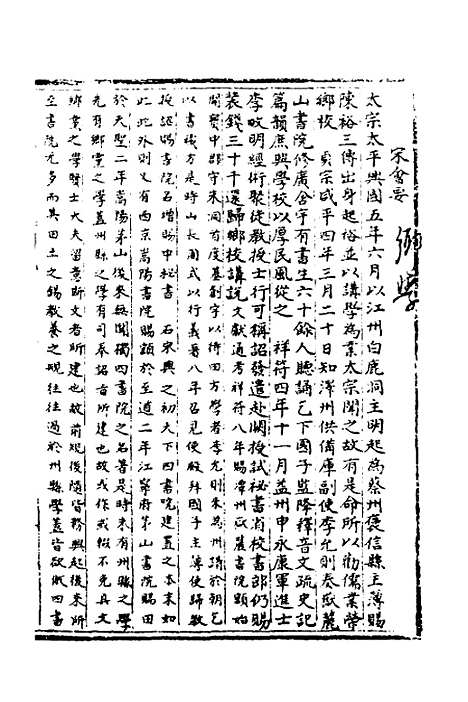 宋會要 鄉學
太宗太平興國五年六月以江州白鹿洞主明起爲蔡州褒信縣主薄賜
陳裕三傳出身起裕並以講學爲業太宗聞之故有是命所以勸儒業榮
鄉校 真宗咸平四年三月二十日知潭州供備庫副使李允則奏嶽麓
山書院修廣舍宇有書生六十餘人聽誦乞下國子監降釋音文疏史記
篇韻庶興學校以厚民風從之 祥符四年十一月益州申永康軍進士
李畋明經術聚徒教授士行可稱詔發遣赴闕授試秘書省校書郎仍賜
裝錢三十千還歸鄉校講説 文獻通考祥符八年賜潭州嶽麓書院額始
開寶中郡守朱洞首度基創宇以待四方學者李允則來爲州請於朝乞
以書藏方是時山長周式以行義著八年召見便殿拜國子主薄使歸教
授詔賜書院名增賜中秘書 右宋興之初天下四書院建置之本末如
此此外則又有西京嵩陽書院賜額於至道二年江寧府茅山書院賜田
於天聖二年嵩陽茅山後來無聞獨四書院之名著是時未有州縣之學
先有鄉黨之學蓋州縣之學有司奉詔旨所建也故或作或輟不免具文
鄉黨之學賢士大夫留意斯文者所建也故前規後隨皆務興起後來所
至書院尤多而其田土之錫教養之規往往過於州縣學蓋皆欲倣四書